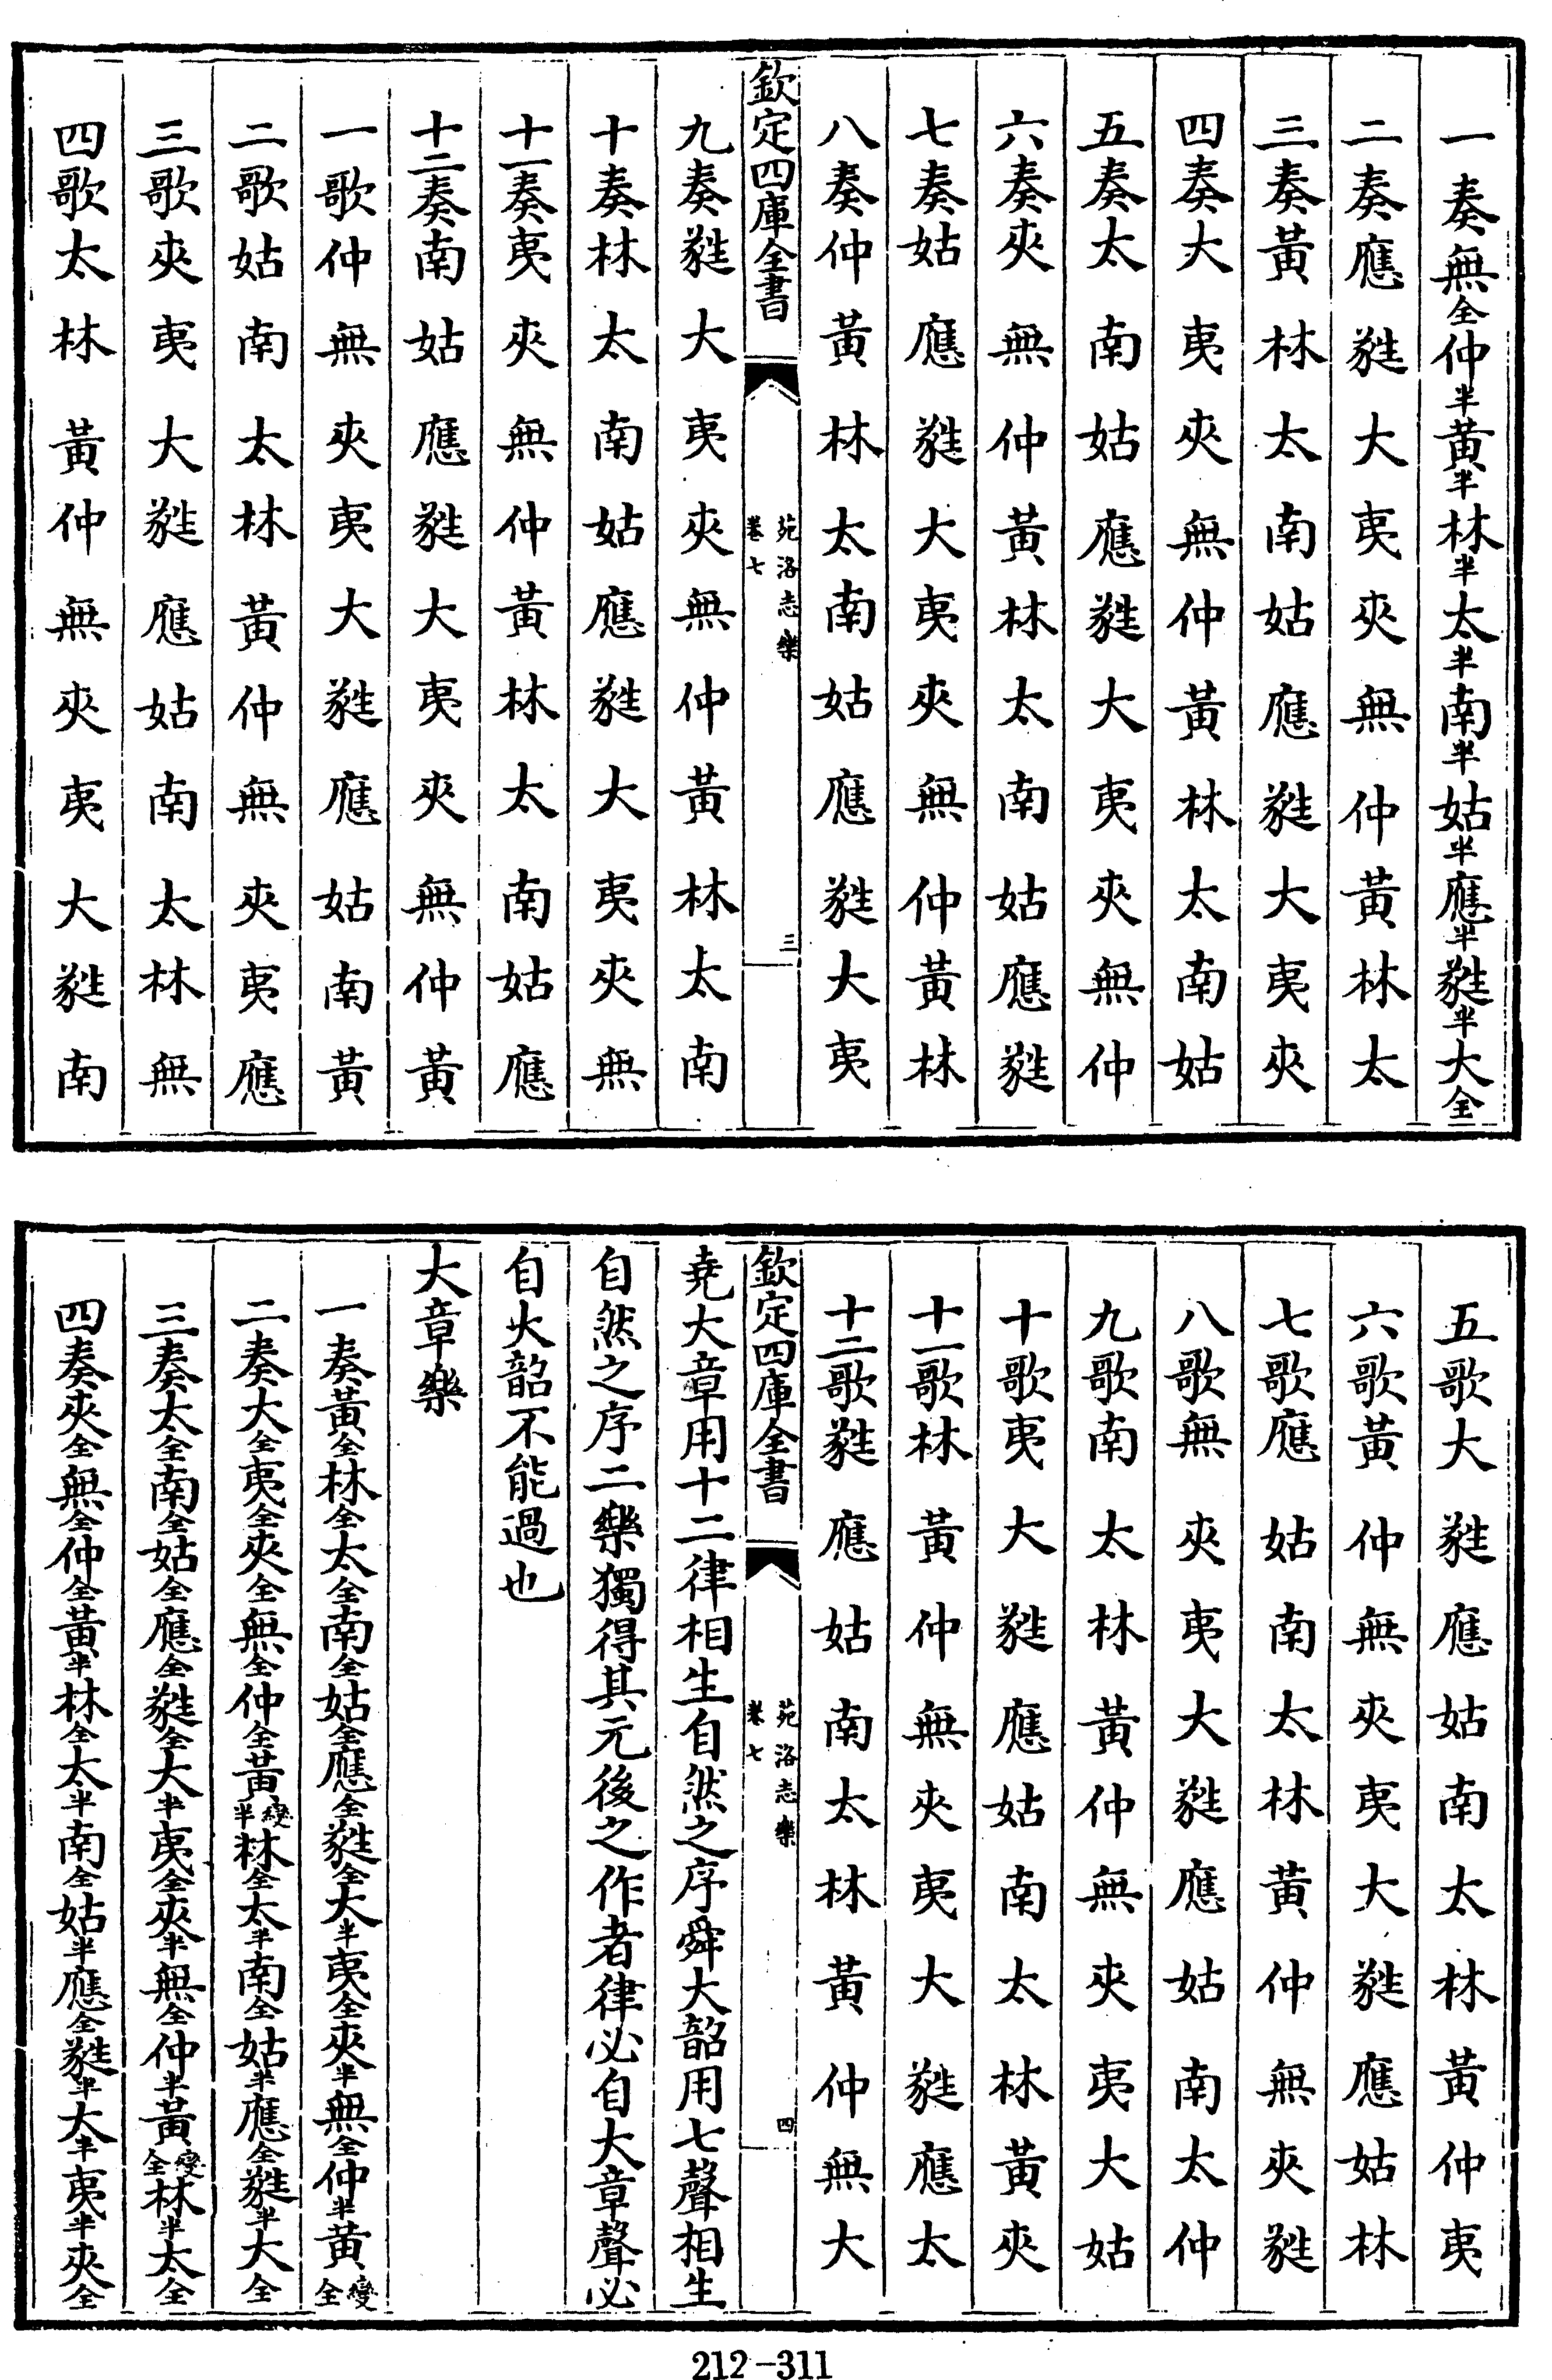 一奏無全仲半黃半林半太半南半姑半應半甤半大全
二奏應甤大夷夾無仲黃林太
三奏黃林太南姑應甤大夷夾
四奏大夷夾無仲黃林太南姑
五奏太南姑應甤大夷夾無仲
六奏夾無仲黃林太南姑應甤
七奏姑應甤大夷夾無仲黃林
八奏仲黃林太南姑應甤大夷
欽定四庫全書
苑洛志樂
卷七
三
九奏甤大夷夾無仲黃林太南
十奏林太南姑應甤大夷夾無
十一奏夷夾無仲黃林太南姑應
十二奏南姑應甤大夷夾無仲黃
一歌仲無夾夷大甤應姑南黃
二歌姑南太林黃仲無夾夷應
三歌夾夷大甤應姑南太林無
四歌太林黃仲無夾夷大甤南
五歌大甤應姑南太林黃仲夷
六歌黃仲無夾夷大甤應姑林
七歌應姑南太林黃仲無夾甤
八歌無夾夷大甤應姑南太仲
九歌南太林黃仲無夾夷大姑
十歌夷大甤應姑南太林黃夾
十一歌林黃仲無夾夷大甤應太
十二歌甤應姑南太林黃仲無大
欽定四庫全書
苑洛志樂
卷七
四
堯大章用十二律相生自然之序舜大韶用七聲相生
自然之序二樂獨得其元後之作者律必自大章聲必
自火韶不能過也
大章樂
一奏黃全林全太全南全姑全應全甤全大半夷全夾半無全仲半黃變全
二奏大全夷全夾全無全仲全黃變半林全太半南全姑半應全甤半大全
三奏太全南全姑全應全甤全大半夷全夾半無全仲半黃變全林半太全
四奏夾全無全仲全黃半林全太半南全姑半應全甤半大半夷半夾全
212-311